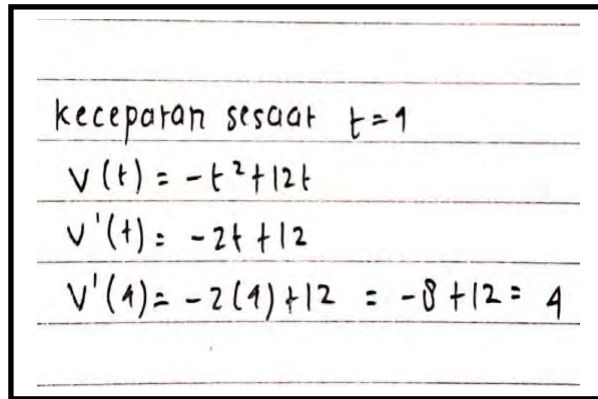 keceparan sesaat t=4
V(t) = -t²+12t
V'(t) = -2t+12
V'(4) = -2(4)+12 = -8+12 = 4